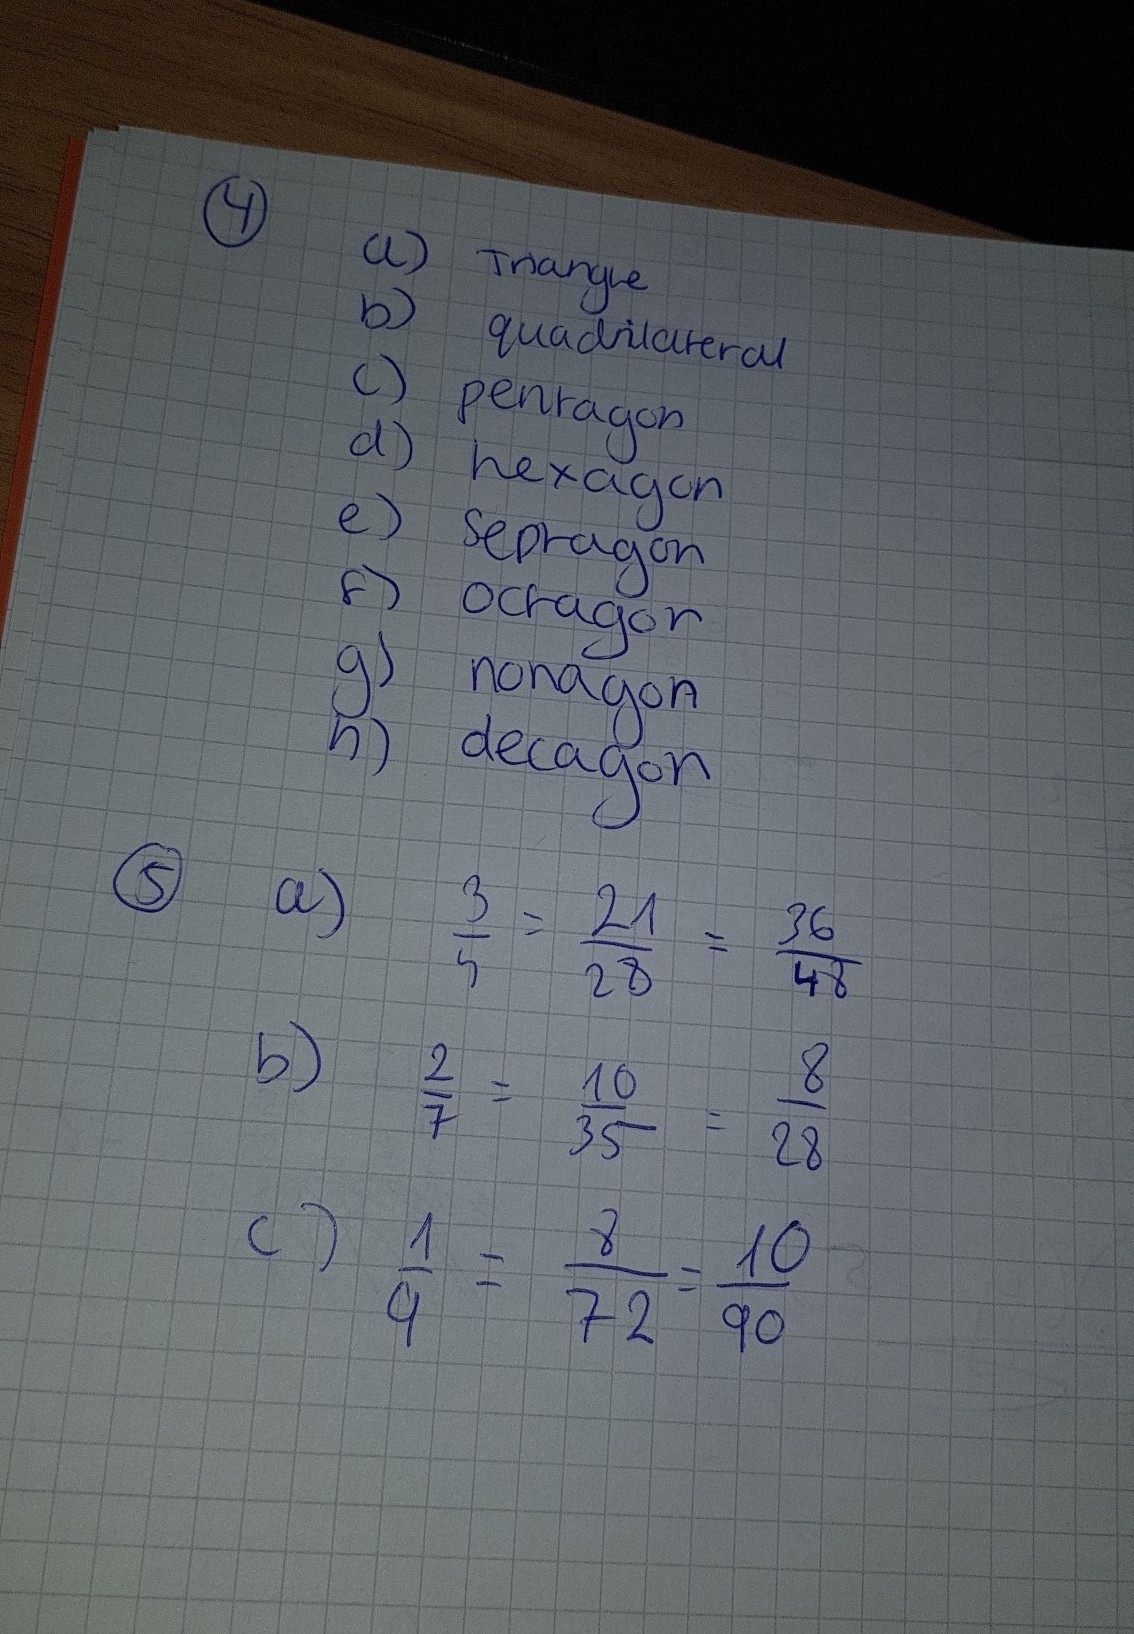 4
a) Triangle
b) quadrilateral
c) pentagon
d) hexagon
e) septagon
f) octagon
g) nonagon
h) decagon
5 a) 3/4 = 21/28 = 36/48
b) 2/7 = 10/35 = 8/28
c) 1/9 = 8/72 = 10/90